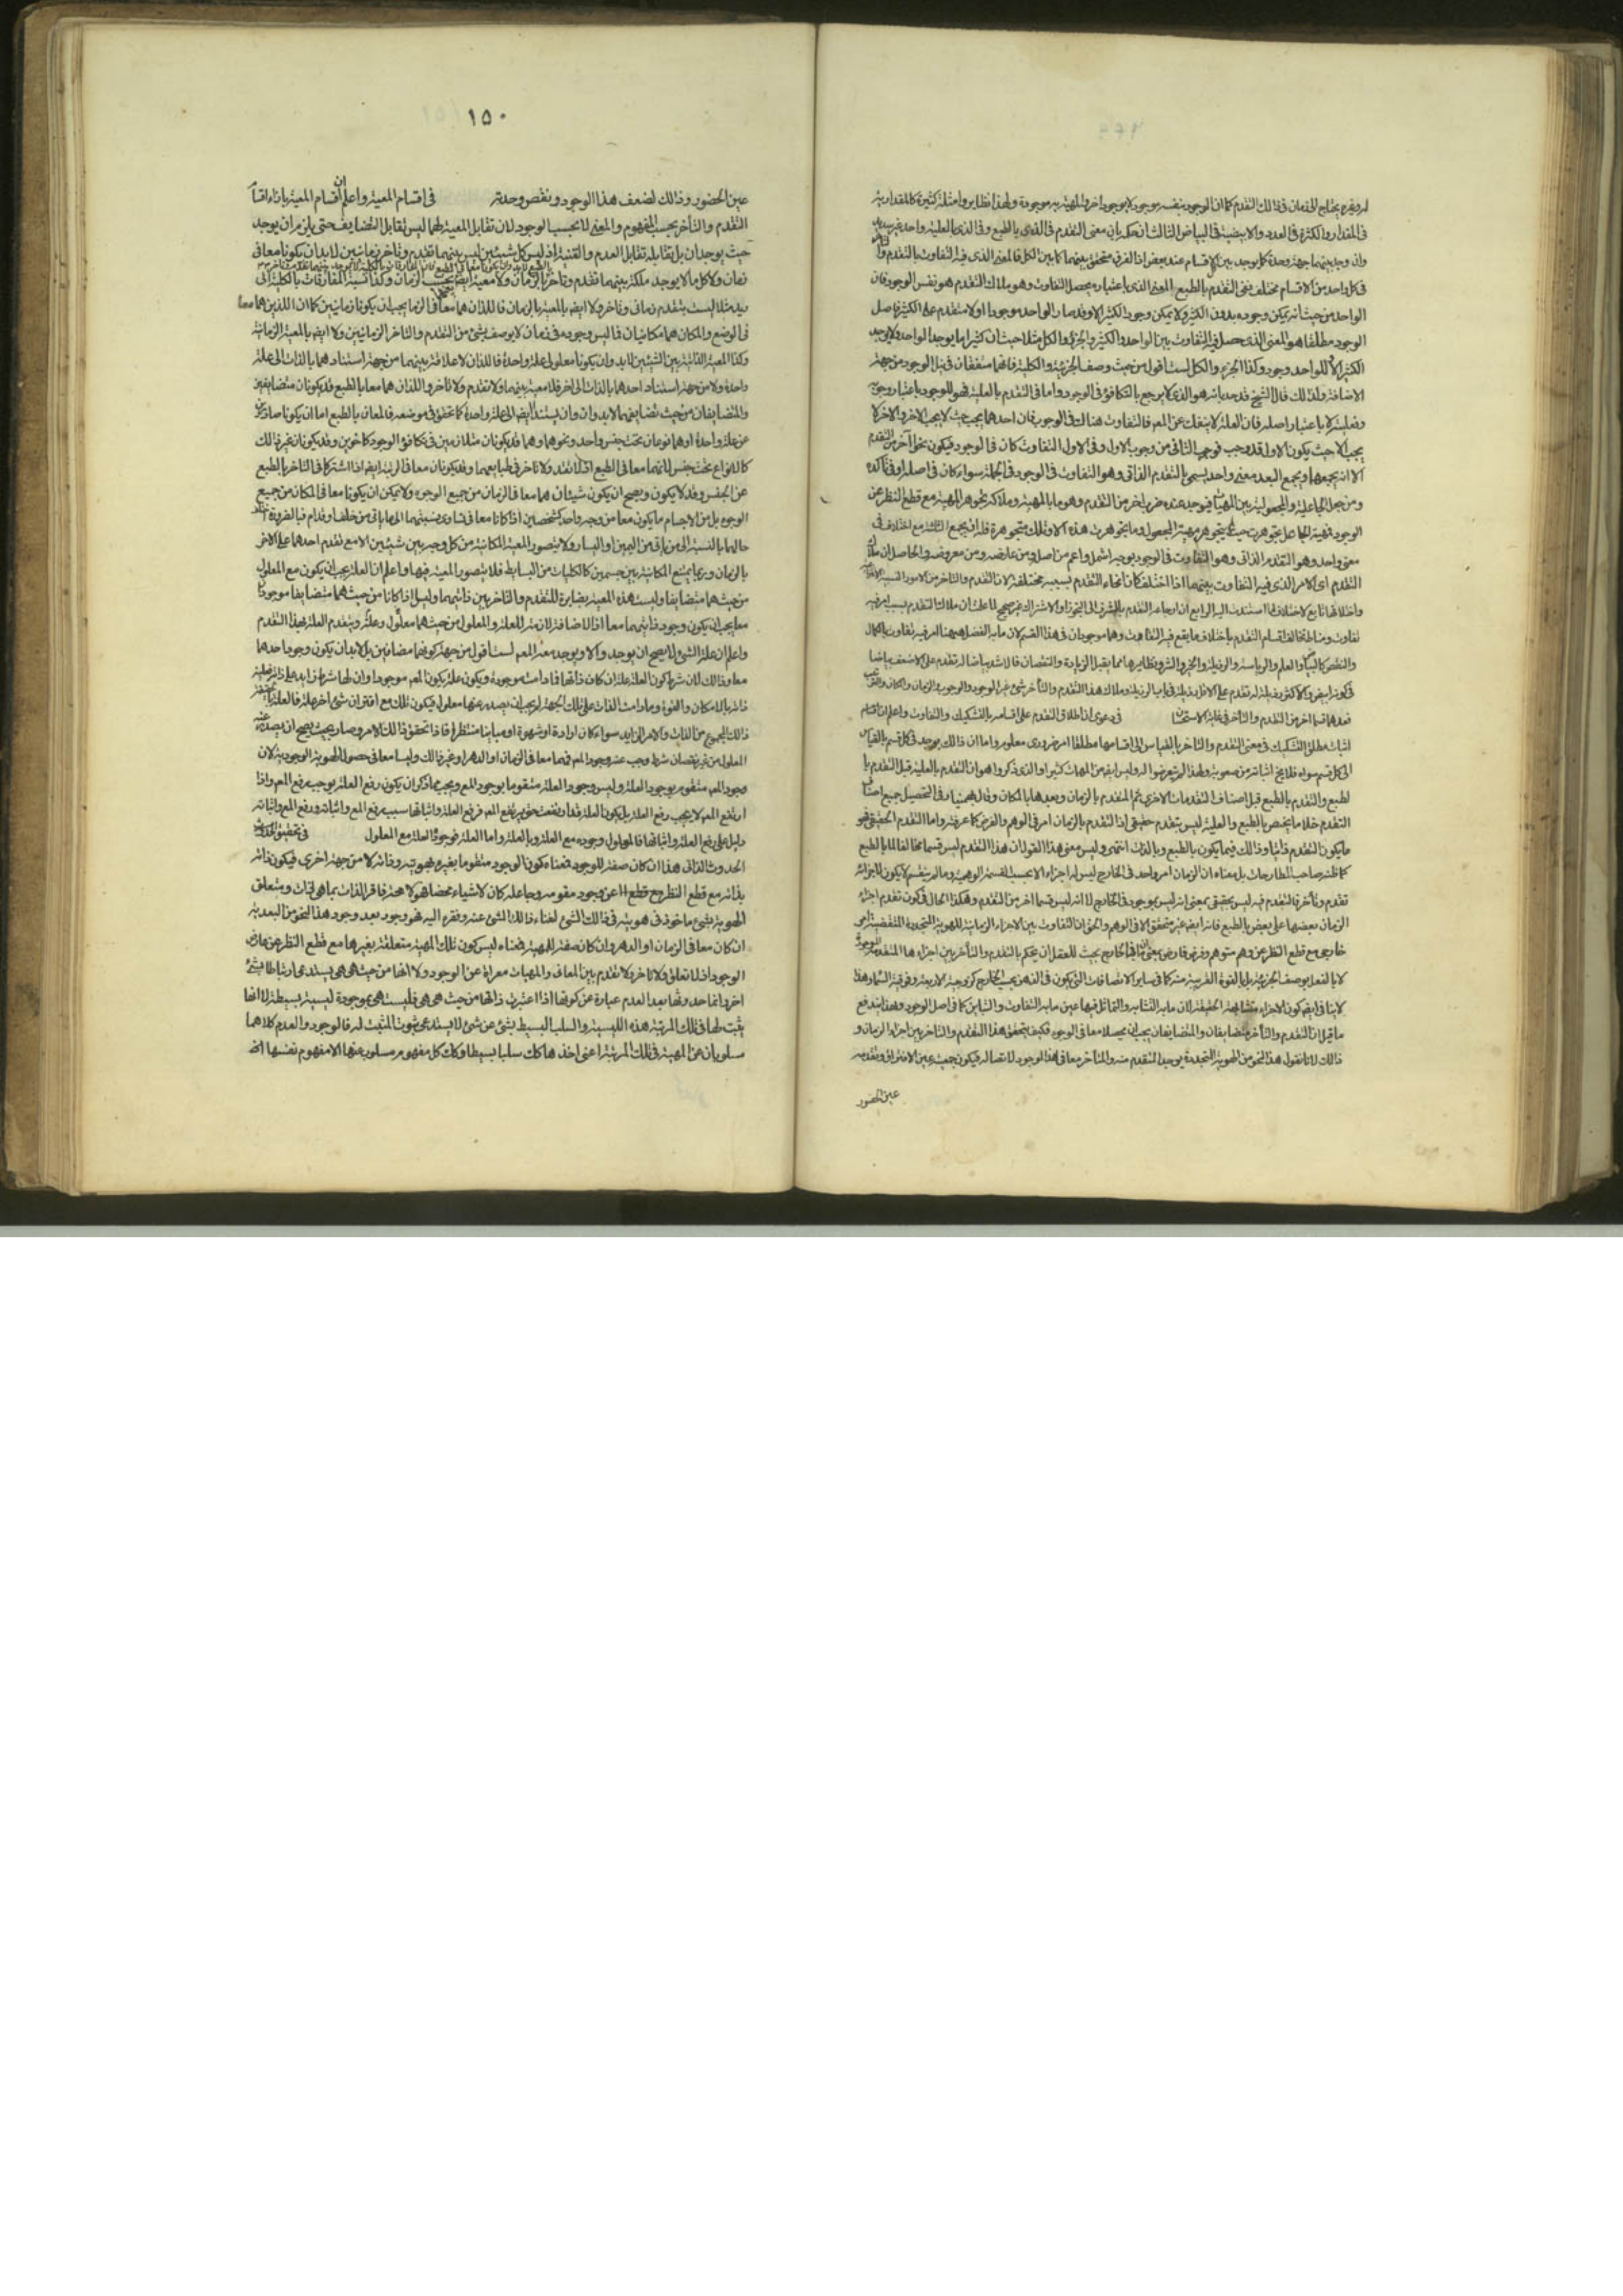 لم يفتقر يحتاج الى زمان فذلك التقدم كما ان الوجود بنفسه موجود لا بوجود اخر والمهية به موجودة ولهذا نظاير وامثلة كثيرة كالمقدارية
في المقدار والكثرة في العدد والابيضية في البياض الثالث ان معنى التقدم في الذي بالطبع وفي الذي بالعلية واحد
وان وجد بينهما جهة وحدة كما يوجد بين كل اقسام عند بعض انا الفرق متحقق بينهما كما بين الكل فالمعنى الذي فيه التفاوت بالتقدم
في كل واحد من الاقسام مختلف ففي التقدم بالطبع المعنى الذي باعتباره يحصل التفاوت وهو ملاك التقدم هو نفس الوجود فان
الواحد من حيث انه يمكن وجوده بدون الكثير ولا يمكن وجود الكثير الا وقد صار الواحد موجودا اولا متقدم على الكثير فاصل
الوجود مطلقا هو المعنى الذي حصل فيه التفاوت بين الواحد والكثير والجزء والكل مثلا حيث ان كثيرا ما يوجد الواحد ولا يوجد
الكثير الا للواحد وجود وكذا الجزء والكل لست اقول من حيث وصف الجزئية والكلية فانهما متفقان في نيل الوجود من جهة
الاضافة ولذلك قال الشيخ قد حد بانه هو الذي لا يرجع بالتكافؤ في الوجود واما في التقدم بالعلية فهو للوجود باعتبار وجوبه
وفعليته لا باعتبار اصله فان العلة لا ينفك عن المعه فالتفاوت هناك في الوجوب فان احدهما يجب حيث لا يجب الاخر والاخر لا
يجب الا حيث يكون الاول قد وجب فوجوب الثاني من وجوب الاول وفي الاول التفاوت كان في الوجود فيكون نحوا اخر من التقدم
الا انه يجمعها ويجمع البعد معنى واحد يسمى بالتقدم الذاتي وهو التفاوت في الوجود في الجملة سواء كان في اصله او في تأكده
ومن جعل الجاعلية والمجعولية بين المهيات فيوجد عنده ضرب اخر من التقدم وهو ما بالمهية وملاكه تجوهر المهية مع قطع النظر عن
الوجود فمهية الجاعل تجوهرت حيث لم يتجوهر مهية المجعول وما تجوهرت هذه الا وتلك متجوهرة فله ان يجمع الثلثة مع اختلاف في
معنى واحد وهو التقدم الذاتي وهو التفاوت في الوجود بوجه اشمل واعم من اصله ومن عارضه ومن معروضه والحاصل ان ملاك
التقدم اى الامر الذي فيه التفاوت بينهما اذا اختلف كان انحاء التقدم بسببه مختلفة لان التقدم والتاخر من الامور النسبية
واختلافها تابع لاختلاف ما استندت اليه الرابع ان ارجاع التقدم بالشرف الى التجوز او الاشتراك غير صحيح لما علمت ان ملاك التقدم بسبب امر فيه
تفاوت ومناط تخالف اقسام التقدم باختلاف ما يقع فيه التفاوت وهما موجودان في هذا القسم لان ما به الفضل ههنا امر فيه تفاوت بالكمال
والنقص كالبياض والعلم والرياسة والرذيلة والخير والشر ونظايرها مما يقبل الزيادة والنقصان فالاشد بياضا له تقدم على الاضعف بياضا
في كونه ابيض والاكثر رذيلة له تقدم على الاقل رذيلة في باب الرذيلة وملاك هذا التقدم والتأخر شئ غير الوجود والوجوب والزمان والمكان
فعد هما قسما اخر من التقدم والتأخر في غاية الاستحسان في دعوى ان اطلاق التقدم على اقسامه بالتشكيك والتفاوت واعلم ان اقسام
اثبات مطلق التشكيك في معنى التقدم والتاخر بالقياس الى اقسامها مطلقا امر ضرورى معلوم واما ان ذلك يوجد في كل قسم بالقياس
الى كل قسم سواه فلا يخ اثباته من صعوبة ولهذا لم يتعرضوا له وليس ايضا من المهمات كثيرا والذي ذكروا هو ان التقدم بالعلية قبل التقدم با
لطبع والتقدم بالطبع قبل اصناف التقدمات الاخرى ثم المتقدم بالزمان وبعدها بالمكان وقال بهمنيار في التحصيل جميع اصناف
التقدم خلا ما يختص بالطبع والعلية ليس بتقدم حقيقي اذا التقدم بالزمان امر في الوهم والفرض كما عرفته واما التقدم الحقيقي فهو
ما يكون التقدم ذاتيا وذلك فيما يكون بالطبع وبالذات انتهى وليس معنى هذا القول ان هذا التقدم ليس قسما مخالفا لما بالطبع
كما ظنه صاحب المطارحات بل معناه ان الزمان امر واحد في الخارج ليس له اجزاء الا بحسب القسمة الوهمية وما لم ينقسم لا يكون لاجزائه
تقدم وتأخر فالتقدم فيه ليس بحقيقي بمعنى انه ليس بموجود في الخارج لا انه ليس قسما اخر من التقدم وهكذا الحال في كون تقدم اجزاء
الزمان بعضها على بعض بالطبع فانه ايضا غير متحقق الا في الوهم والحق ان التفاوت بين الاجزاء الزمانية للهوية المتجددة المتقضية امر
خارجى مع قطع النظر عن وهم متوهم وفرض فارض بمعنى ان ما في الخارج بحيث للعقل ان يحكم بالتقدم والتأخر بين اجزاءها المتقدمة
لا بالفعل بوصف الجزئية بل بالقوة القريبة منه كما في ساير الاتصافات التي يكون في الذهن بحسب الخارج كزوجية الاربعة وفوقية السماء وهذا
لا ينافي ايضا كون الاجزاء متشابهة الحقيقة لان ما به التشابه والتماثل فيها عين ما به التفاوت والتباين كما في اصل الوجود وبهذا يندفع
ما قيل ان التقدم والتأخر متضايفان والمتضايفان يجب ان يحصلا معا في الوجود فكيف يتحقق هذا التقدم والتاخر بين اجزاء الزمان و
ذلك لانا نقول هذا النحو من الهوية المتجددة يوجد المتقدم منه والمتاخر معا في هذا الوجود لاتصاله فيكون جمعيته عين الافتراق وتقدمه
عين الحضور
١٥٠
عين الحضور وذلك لضعف هذا الوجود ونقص وحدته في اقسام المعية واعلم ان اقسام المعية بازاء اقسام
التقدم والتأخر بحسب المفهوم والمعنى لا بحسب الوجود لان تقابل المعية لهما ليس تقابل التضايف حتى يلزم ان يوجد
حيث يوجدان بل تقابله تقابل العدم والقنية اذ ليس كل شيئين ليس بينهما تقدم وتأخر زمانيين لا بد ان يكونا معا في
زمان ولا كل ما لا يوجد ملكة بينهما تقدم وتاخر بالزمان ولا معية ايضا بحسب الزمان وكذا نسبة المفارقات بالكلية الى
زيد مثلا ليست بتقدم زمانى وتاخر ولا ايضا بالمعية بالزمان فاللذان هما معا في الزمان يجب ان يكونا زمانيين كما ان اللذين هما معا
في الوضع والمكان هما مكانيان فاليس وجوده في زمان لا يوصف بشئ من التقدم والتاخر الزمانيين ولا ايضا بالمعية الزمانية
وكذا المعية الذاتية بين الشيئين لا بد وان يكونا معلولى علة واحدة فاللذان لا علاقة بينهما من جهة استنادهما بالذات الى علة
واحدة ولا من جهة استناد احدهما بالذات الى اخر فلا معية بينهما ولا تقدم ولا تاخر واللذان هما معا بالطبع قد يكونان متضايفين
والمتضايفان من حيث تضايفهما لا بد وان يستندا ايضا الى علة واحدة كما تحقق في موضعه فالمعان بالطبع اما ان يكونا صادرين
عن علة واحدة او هما نوعان تحت جنس واحد ونحوهما وهما قد يكونان متلازمين في تكافؤ الوجود كاخوين وقد يكونان غير ذلك
كالانواع تحت جنس لانهما معا في الطبع اذ لا تقدم ولا تاخر في طبايعهما وقد يكونان معا في الرتبة ايضا اذا اشتركا في التاخر بالطبع
عن الجنس وقد لا يكون ويصح ان يكون شيئان هما معا في الزمان من جميع الوجوه ولا يمكن ان يكونا معا في المكان من جميع
الوجوه بل من الاجسام ما يكون معا من وجه واحد كشخصين اذا كانا معا في تساوى نسبتهما الى ما ياتى من خلف او قدام فبالضرورة اختلف
حالهما بالنسبة الى من ياتى من اليمين او اليسار ولا يتصور المعية المكانية من كل وجه بين شيئين الا مع تقدم احدهما على الاخر
بالزمان وربما يمتنع المكانية بين جسمين كالكليات من البسايط فلا يتصور المعية فيها واعلم ان العلة يجب ان يكون مع المعلول
من حيث هما متضايفا وليست هذه المعية بضايرة للتقدم والتاخر بين ذاتيهما وليس اذا كانا من حيث هما متضايفا موجودا
معا يجب ان يكون وجود ذاتيهما معا اذ الاضافة لازمة للعلة والمعلول من حيث هما معلول وعلة ويتقدم العلة بهذا التقدم
واعلم ان علة الشئ لا يصح ان يوجد الا ويوجد معه المعه لست اقول من جهة كونهما مضافين بل لا بد ان يكون وجود احدهما
معا وذلك لان شرط كون العلة علة ان كان ذاتها فما دامت موجودة ويكون علة يكون المعه موجودا وان لها شرط زايد على ذاته
ذاته بالامكان والقوة وما دامت الذات على تلك الجهة لم يجب ان يصدر عنها معلول فيكون تلك مع اقتران شئ اخر علة فالعلة
ذلك المجموع من الذات والامر الزايد سواء كان ارادة او شهوة او مباينا منتظرا فاذا تحقق ذلك الامر وصار بحيث يصح ان يصدر عنه
المعلول من غير نقصان شرط وجب عنه وجود المعه فهما معا في الزمان او الدهر او غير ذلك وليسا معا في حصول الهوية الوجودية لان
وجود المعه متقوم بوجود العلة وليس وجود العلة متقوما بوجود المعه ويجب مما ذكر ان يكون رفع العلة يوجب رفع المعه واذا
ارتفع المعه لا يجب رفع العلة بل يكون العلة قد ارتفعت حتى يرتفع المعه فرفع العلة واثباتها سبب رفع المعه واثباته ورفع المعه واثباته
دليل على رفع العلة واثباتها فالمعلول وجوده مع العلة وبالعلة واما العلة فوجودها مع المعلول في تحقيق الحدوث
الحدوث الذاتى هذا ان كان صفة للوجود فمعناه كون الوجود متقوما بغيره بهويته وذاته لا من جهة اخرى فيكون ذاته
بذاته مع قطع النظر عن وجود مقومه وجاعله كان لا شيئا محضا فهو لا محة فاقر الذات بما هى ذات ومتعلق
الهوية بشئ ماخوذ في هويته ذلك الشئ لغناء ذلك الشئ عنه وفقره اليه فهو وجود بعد وجود هذا النحو من البعدية
ان كان معا في الزمان او الدهر وان كان صفة للمهية فمعناه ليس كون تلك المهية متعلقة بغيرها مع قطع النظر عن عارض
الوجود اذ لا تعلق ولا تاخر ولا تقدم بين المعانى والمهيات معراة عن الوجود ولا انها من حيث هى هى يستدعى ارتباطا بشئ
اخر وانما حدوثها بعد العدم عبارة عن كونها اذا اعتبرت ذاتها من حيث هى هى فليست هى بموجودة ليسية بسيطة لا انها
يثبت لها في تلك المرتبة هذه الليسية والسلب البسيط بشئ عن شئ لا يستدعى ثبوت المثبت له فالوجود والعدم كلاهما
مسلوبان عن المهية في تلك المرتبة اعنى اخذها كك سلبا بسيطا وكك كل مفهوم مسلوب عنها الا مفهوم نفسها